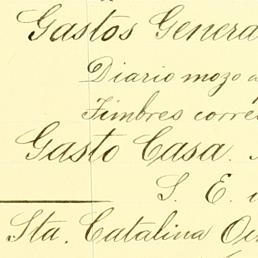 Gastos Genera
Diario mozo a
Timbres corre
Gasto Casa.
S. E.
Sta. Catalina